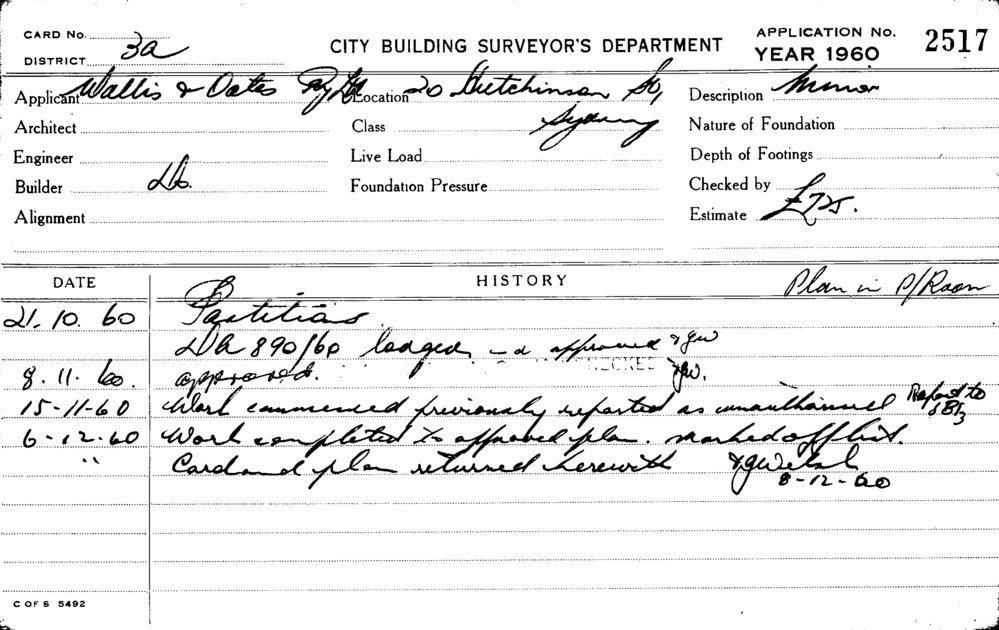 CARD No.
DISTRICT 3a
CITY BUILDING SURVEYOR'S DEPARTMENT
APPLICATION No. 2517
YEAR 1960
Applicant Wallis & Oates Pty Ltd Location 20 Hutchinson St, Description Minor
Architect Class Sydney Nature of Foundation
Engineer Live Load Depth of Footings
Builder Foundation Pressure Checked by
Alignment Estimate £725.
DATE HISTORY Plan in P/Room
21.10.60 Partitions
DA 890/60 lodged - & approved
8.11.60. approved.
15-11-60 Work commenced previously reported as unauthorised Report to
6-12-60 Work completed to approved plan. Marked off list.
" Card and plan returned herewith
8-12-60
C OF S 5492